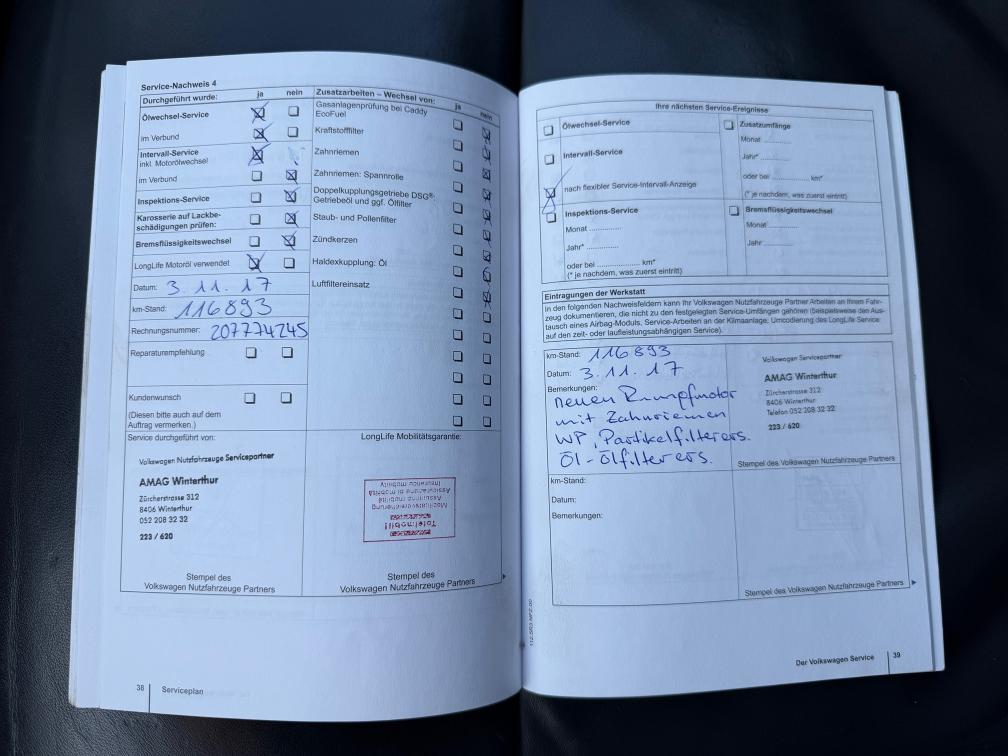 Service-Nachweis 4
Durchgeführt wurde: ja nein
Ölwechsel-Service
im Verbund
Intervall-Service
inkl. Motorölwechsel
im Verbund
Inspektions-Service
Karosserie auf Lackbe-
schädigungen prüfen:
Bremsflüssigkeitswechsel
LongLife Motoröl verwendet
Datum: 3.11.17
km-Stand: 116893
Rechnungsnummer: 207774245
Reparaturempfehlung
Kundenwunsch
(Diesen bitte auch auf dem
Auftrag vermerken.)
Service durchgeführt von:
Volkswagen Nutzfahrzeuge Servicepartner
AMAG Winterthur
Zürcherstrasse 312
8406 Winterthur
052 208 32 32
223 / 620
Stempel des
Volkswagen Nutzfahrzeuge Partners
Zusatzarbeiten – Wechsel von: ja nein
Gasanlagenprüfung bei Caddy
EcoFuel
Kraftstofffilter
Zahnriemen
Zahnriemen: Spannrolle
Doppelkupplungsgetriebe DSG®:
Getriebeöl und ggf. Ölfilter
Staub- und Pollenfilter
Zündkerzen
Haldexkupplung: Öl
Luftfiltereinsatz
LongLife Mobilitätsgarantie:
Totalmobil!
Mobilitätsversicherung
Assurance mobilité
Assicurazione di mobilità
Insurance mobility
Stempel des
Volkswagen Nutzfahrzeuge Partners
38 Serviceplan
Ihre nächsten Service-Ereignisse
Ölwechsel-Service
Intervall-Service
nach flexibler Service-Intervall-Anzeige
Inspektions-Service
Monat ..............
Jahr* ..............
oder bei .................. km*
(* je nachdem, was zuerst eintritt)
Zusatzumfänge
Monat ..............
Jahr* ..............
oder bei .................. km*
(* je nachdem, was zuerst eintritt)
Bremsflüssigkeitswechsel
Monat ..............
Jahr ..............
Eintragungen der Werkstatt
In den folgenden Nachweisfeldern kann Ihr Volkswagen Nutzfahrzeuge Partner Arbeiten an Ihrem Fahr-
zeug dokumentieren, die nicht zu den festgelegten Service-Umfängen gehören (beispielsweise den Aus-
tausch eines Airbag-Moduls, Service-Arbeiten an der Klimaanlage; Umcodierung des LongLife Service
auf den zeit- oder laufleistungsabhängigen Service).
km-Stand: 116893
Datum: 3.11.17
Bemerkungen:
neuen Rumpfmotor
mit Zahnriemen
WP, Partikelfilter ers.
Öl-Ölfilter ers.
Volkswagen Servicepartner
AMAG Winterthur
Zürcherstrasse 312
8406 Winterthur
Telefon 052 208 32 32
223 / 620
Stempel des Volkswagen Nutzfahrzeuge Partners
km-Stand:
Datum:
Bemerkungen:
Stempel des Volkswagen Nutzfahrzeuge Partners
Der Volkswagen Service 39